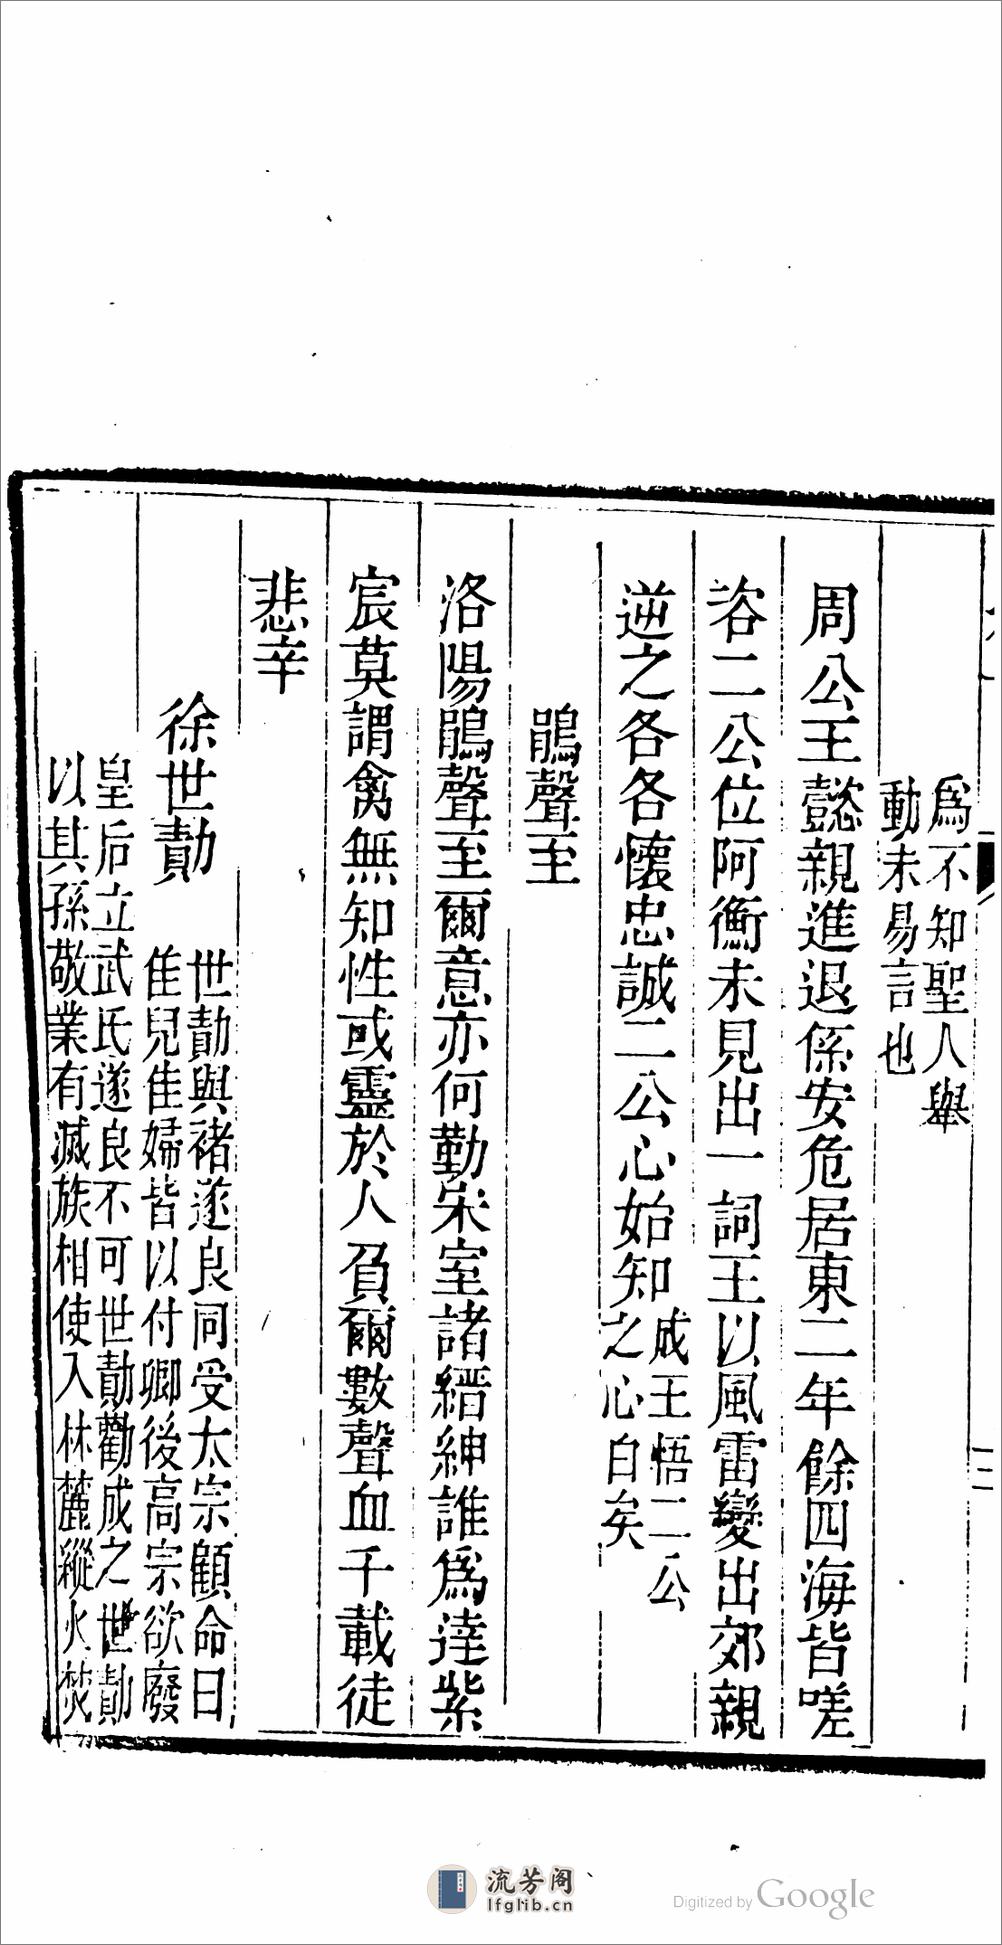 爲不知聖人舉
動未易言也
周公王懿親進退係安危居東二年餘四海皆嗟
咨二公位阿衡未見出一詞王以風雷變出郊親
逆之各各懷忠誠二公心始知
成王悟二公
之心白矣
鵑聲至
洛陽鵑聲至爾意亦何勤宋室諸縉紳誰爲達紫
宸莫謂禽無知性或靈於人負爾數聲血千載徒
悲辛
徐世勣
世勣與褚遂良同受太宗顧命曰
佳兒佳婦皆以付卿後高宗欲廢
皇后立武氏遂良不可世勣勸成之世勣
以其孫敬業有滅族相使入林麓縱火焚
二
流芳阁
lfglib.cn
Digitized by Google